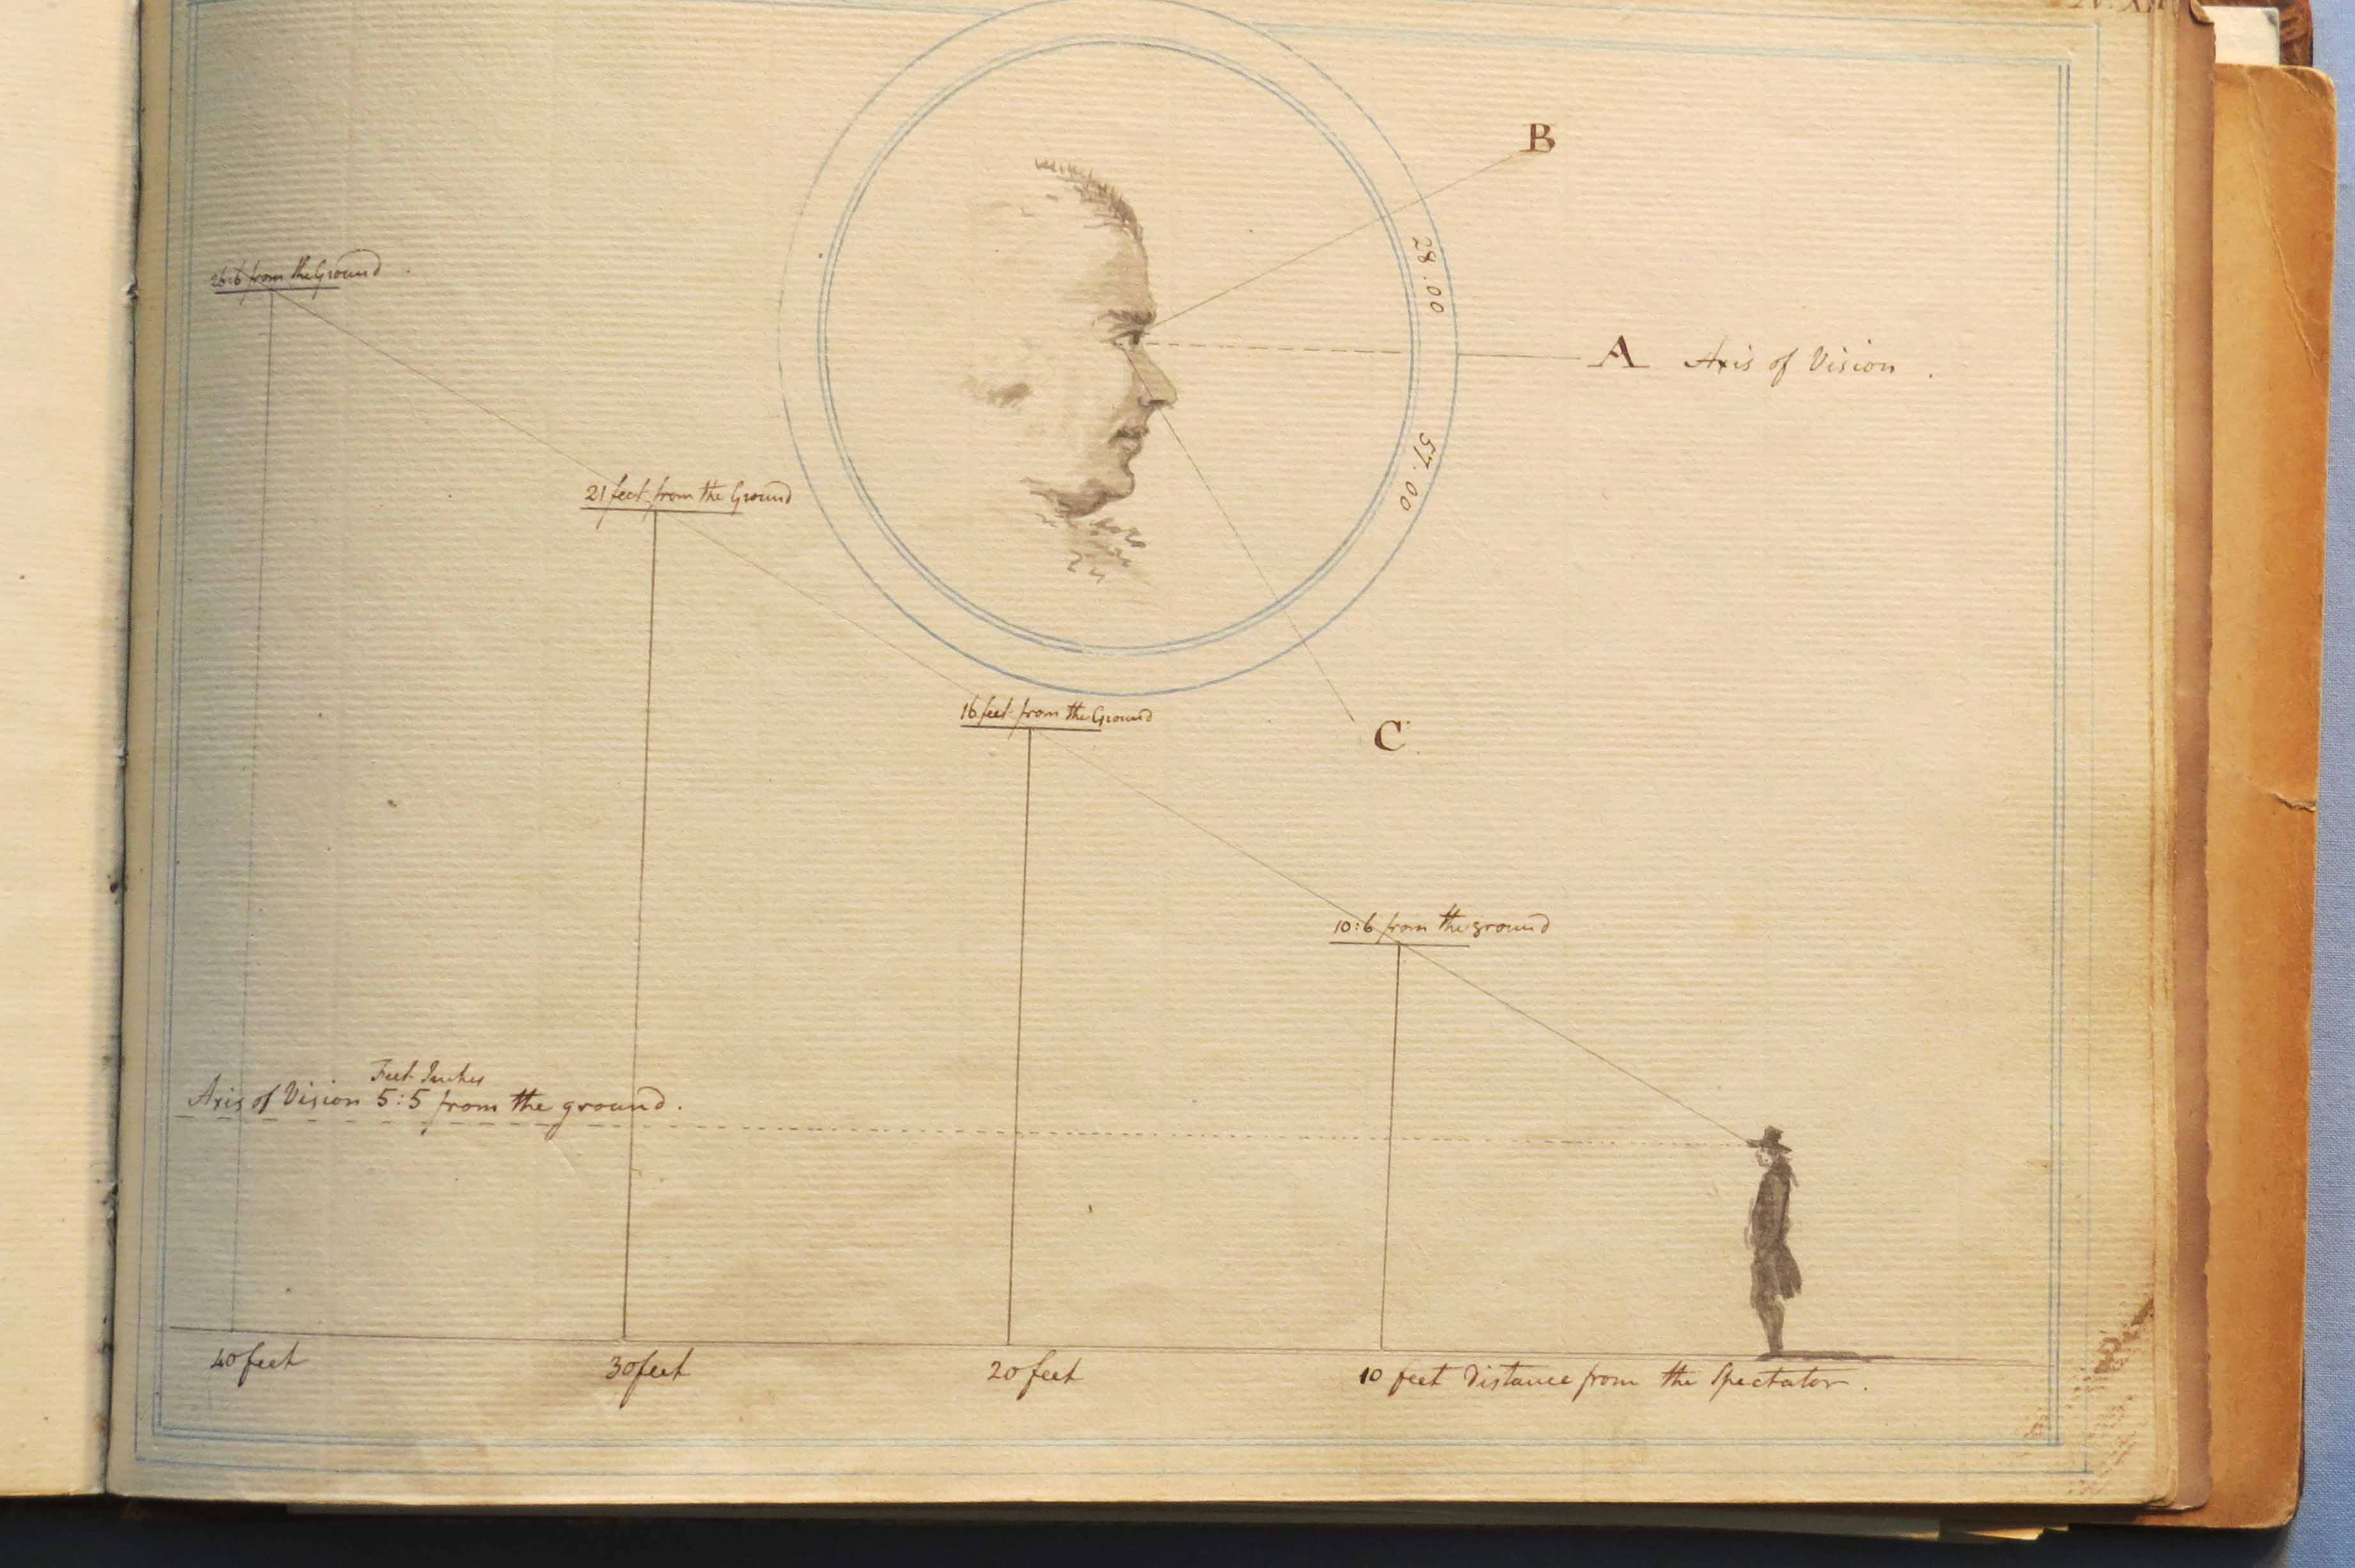 B
28.00
A Axis of Vision.
57.00
26:6 from the Ground.
21 feet from the Ground
16 feet from the Ground
C
10:6 from the ground
Feet Inches
Axis of Vision 5:5 from the ground.
40 feet
30 feet
20 feet
10 feet Distance from the Spectator.